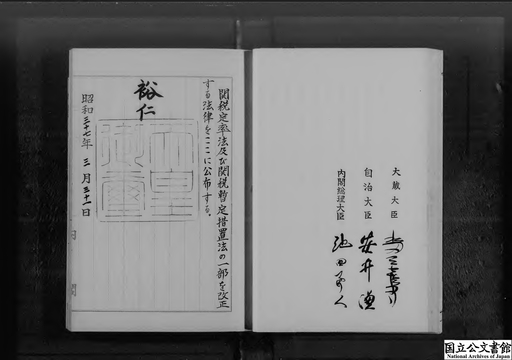 大蔵大臣
自治大臣 安井謙
内閣総理大臣 池田勇人
関税定率法及び関税暫定措置法の一部を改正
する法律をここに公布する。
裕仁
天皇御璽
昭和三十七年三月三十一日
国立公文書館
National Archives of Japan